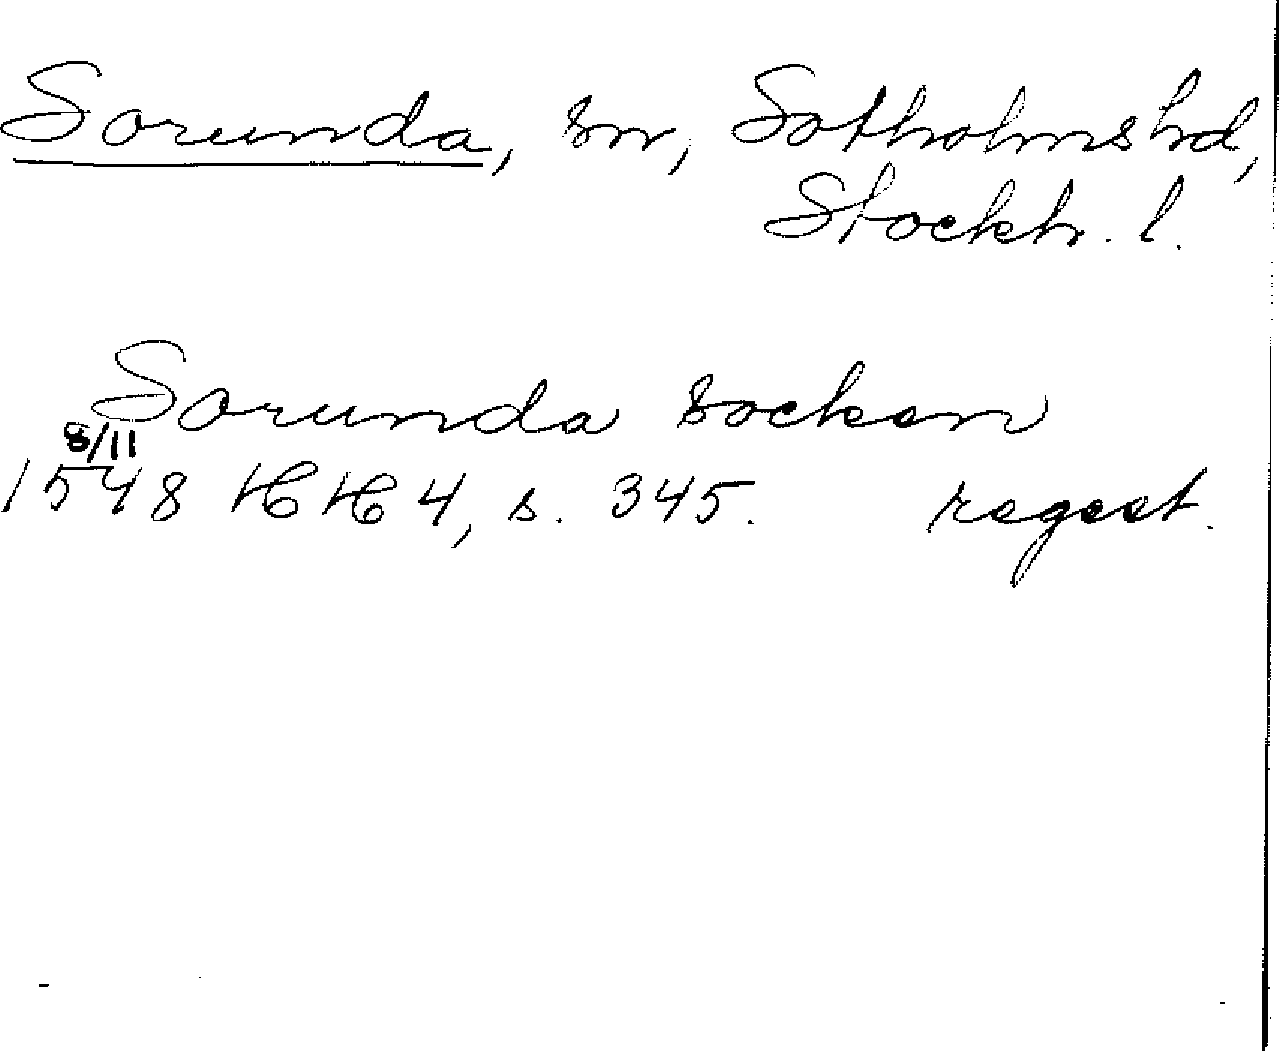 Sorunda, sn, Sotholms hd,
Stockh. l.
Sorunda socken
8/11
1548 HH 4, s. 345. regest.